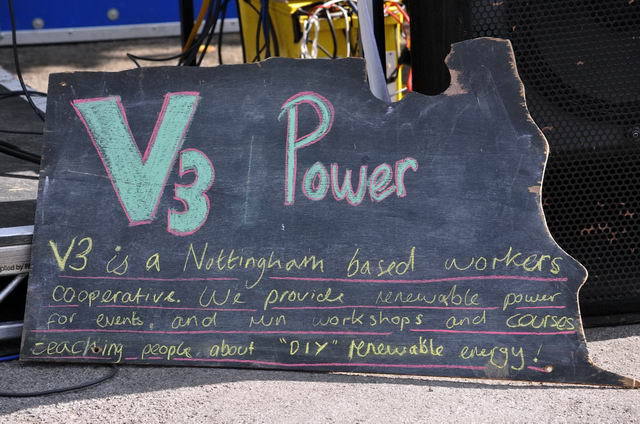 V3 Power
V3 is a Nottingham based workers
cooperative. We provide renewable power
for events, and run workshops and courses
teaching people about "DIY" renewable energy!